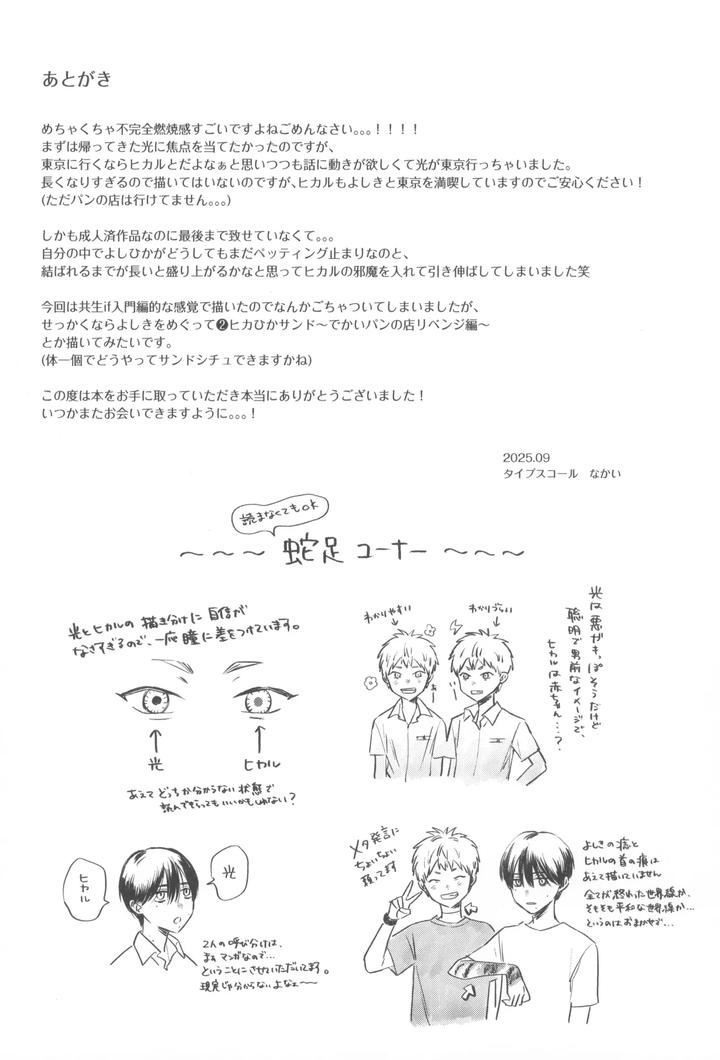 あとがき
めちゃくちゃ不完全燃焼感すごいですよねごめんなさい。。。！！！！
まずは帰ってきた光に焦点を当てたかったのですが、
東京に行くならヒカルとだよなぁと思いつつも話に動きが欲しくて光が東京行っちゃいました。
長くなりすぎるので描いてはいないのですが、ヒカルもよしきと東京を満喫していますのでご安心ください！
(ただパンの店は行けてません。。。)
しかも成人済作品なのに最後まで致せていなくて。。。
自分の中でよしひかがどうしてもまだペッティング止まりなのと、
結ばれるまでが長いと盛り上がるかなと思ってヒカルの邪魔を入れて引き伸ばしてしまいました笑
今回は共生if入門編的な感覚で描いたのでなんかごちゃついてしまいましたが、
せっかくならよしきをめぐって❷ヒカひかサンド〜でかいパンの店リベンジ編〜
とか描いてみたいです。
(体一個でどうやってサンドシチュできますかね)
この度は本をお手に取っていただき本当にありがとうございました！
いつかまたお会いできますように。。。！
2025.09
タイプスコール　なかい
読まなくてもok
〜〜〜 蛇足コーナー 〜〜〜
光とヒカルの描き分けに自信が
なさすぎるので、一応瞳に差をつけています。
光
ヒカル
あえてどっちか分からない状態で
読んでもらってもいいかもしれない？
わかりやすい
わかりづらい
光は悪ガキっぽそうだけど
聡明で男前なイメージで、
ヒカルは赤ちゃん…？
ヒカル
光
2人の呼び分けは、
まぁマンガなので…
ということにさせていただいてます。
現実じゃ分からないよなェ〜
メタ発言に
ちょいちょい
頼ってます
よしきの痣と
ヒカルの首の痕は
あえて描いていません
全てが終わった世界線か、
そもそも平和な世界線か…
というのはおまかせで…